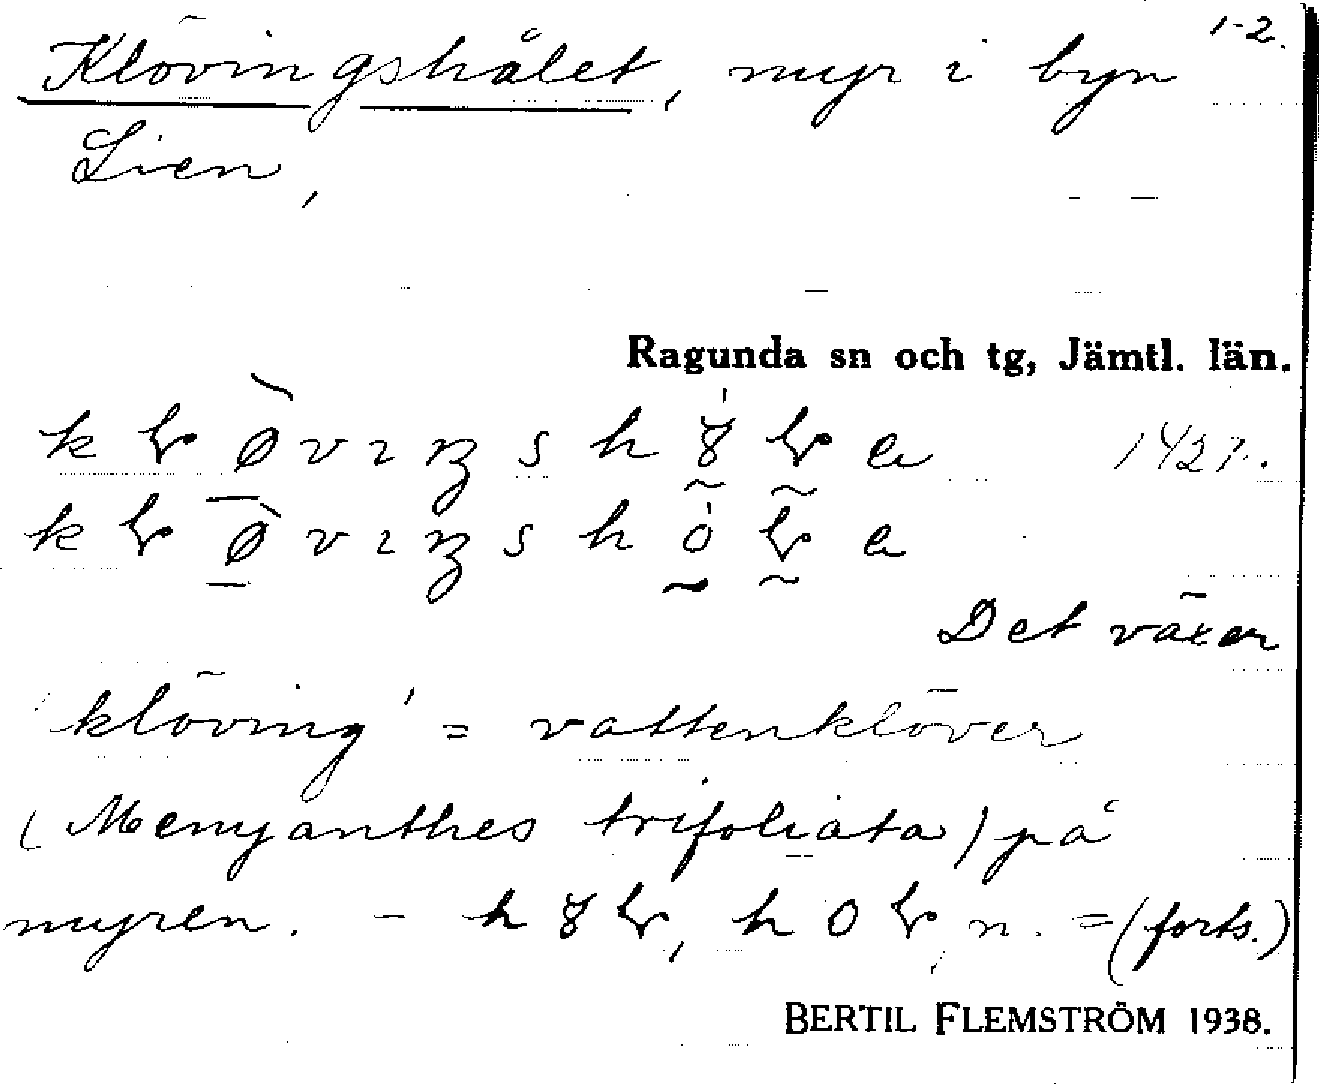 1-2.
Klövingshålet, myr i byn
Lien,
Ragunda sn och tg, Jämtl. län.
1427.
Det växer
klöving' = vattenklöver
(Menyanthes trifoliata) på
myren. - n. = (forts.)
BERTIL FLEMSTRÖM 1938.